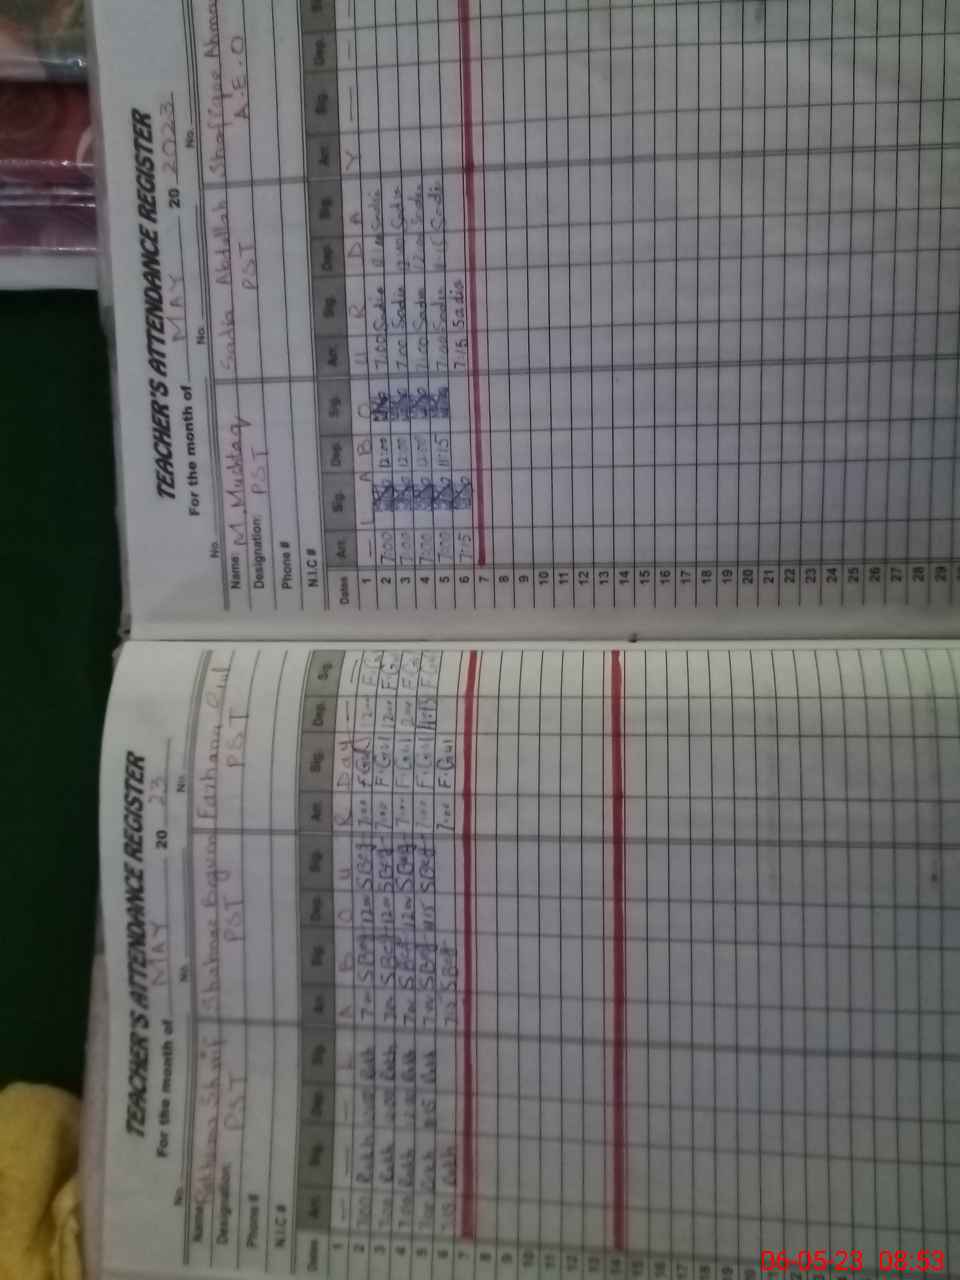 TEACHER'S ATTENDANCE REGISTER
For the month of MAY 20 23
No. No. No.
Name: Shahnaz Begum Farhana Gul
Designation: PST PST PST
Phone #
N.I.C #
Dates Arr. Sig. Dep. Sig. Arr. Sig. Dep. Sig. Arr. Sig. Dep. Sig.
1 — — — L A B O U R Day — —
2 7:00 Rukh 12:00 Rukh 7:00 S Beg 12:00 S Beg 7:00 F.Gul 12:00 F.Gul
3 7:00 Rukh 12:00 Rukh 7:00 S Beg 12:00 S Beg 7:00 F.Gul 12:00 F.Gul
4 7:00 Rukh 12:00 Rukh 7:00 S Beg 12:00 S Beg 7:00 F.Gul 12:00 F.Gul
5 7:00 Rukh 11:15 Rukh 7:00 S Beg 11:15 S Beg 7:00 F.Gul 11:15 F.Gul
6 7:15 Rukh 7:15 S Beg 7:00 F.Gul
7
8
9
10
11
12
13
14
15
16
17
18
19
20
21
22
TEACHER'S ATTENDANCE REGISTER
For the month of MAY 20 23
No. No. No.
Name: M. Mushtaq Sadia Abdullah Shaffique Ahma
Designation: PST PST A.E.O
Phone #
N.I.C #
Dates Arr. Sig. Dep. Sig. Arr. Sig. Dep. Sig. Arr. Sig. Dep.
1 — L A B O U R D A Y — —
2 7:00 12:00 7:00 Sadia 12:00 Sadia
3 7:00 12:00 7:00 Sadia 12:00 Sadia
4 7:00 12:00 7:00 Sadia 12:00 Sadia
5 7:00 11:15 7:00 Sadia 11:15 Sadia
6 7:15 7:15 Sadia
7
8
9
10
11
12
13
14
15
16
17
18
19
20
21
22
23
24
25
26
27
28
29
06-05-23 08:53